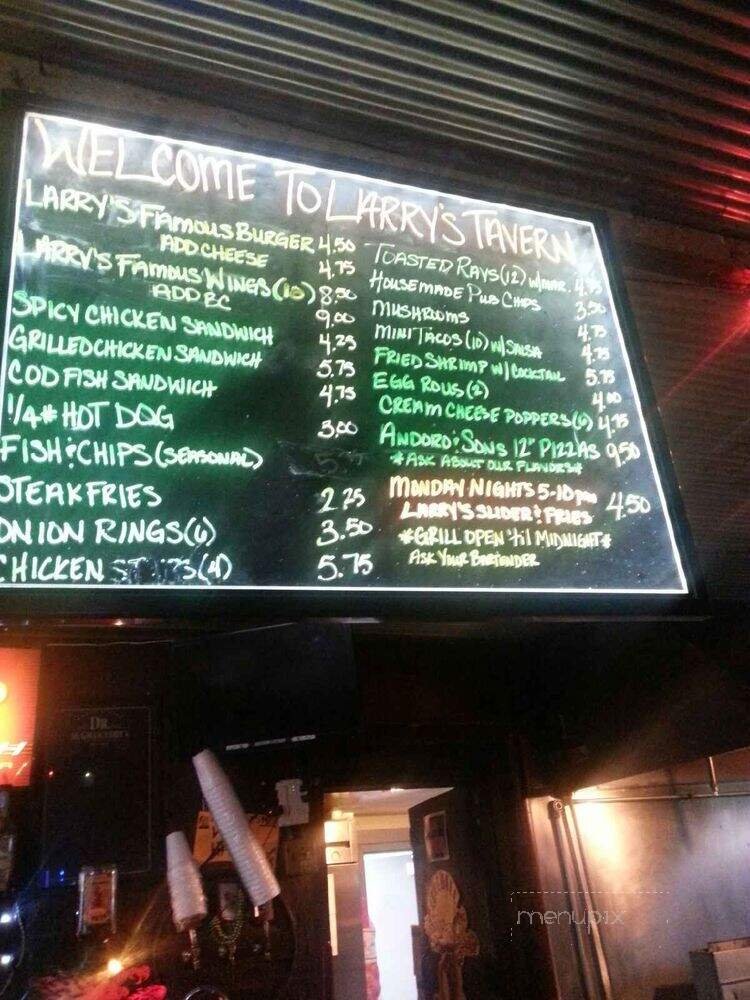 WELCOME TO LARRY'S TAVERN
LARRY'S FAMOUS BURGER 4.50
ADD CHEESE 4.75
LARRY'S FAMOUS WINGS (10) 8.50
ADD BC 9.00
SPICY CHICKEN SANDWICH 4.25
GRILLED CHICKEN SANDWICH 5.75
COD FISH SANDWICH 4.75
1/4# HOT DOG 3.00
FISH & CHIPS (SEASONAL)
STEAK FRIES 2.25
ONION RINGS (6) 3.50
CHICKEN (4) 5.75
TOASTED RAVS (12) W/MAR. 4.75
HOUSEMADE PUB CHIPS 3.50
MUSHROOMS 4.75
MINI TACOS (10) W/ SALSA 4.75
FRIED SHRIMP W/ COCKTAIL 5.75
EGG ROLLS (2) 4.00
CREAM CHEESE POPPERS (6) 4.75
ANDORO & SONS 12" PIZZAS 9.50
*ASK ABOUT OUR FLAVORS*
MONDAY NIGHTS 5-10pm
LARRY'S SLIDER & FRIES 4.50
*GRILL OPEN 'til MIDNIGHT*
ASK YOUR BARTENDER
DR.
menupix